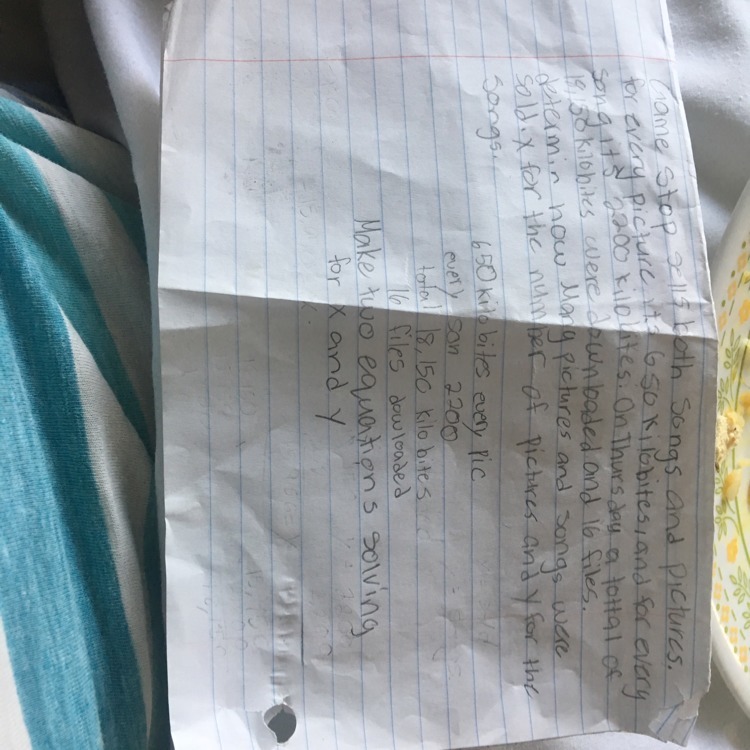 Game Stop sells both songs and pictures.
for every picture its 650 kilobites, and for every
song its 2200 kilobites. On Thursday a tottal of
kilobites were downloaded and 16 files.
determin how Many pictures and songs were
sold. X for the number of pictures and Y for the
songs.
650 kilobites every pic
every son 2200
total 18,150 kilobites
16 files downloaded
Make two equations solving
for X and Y